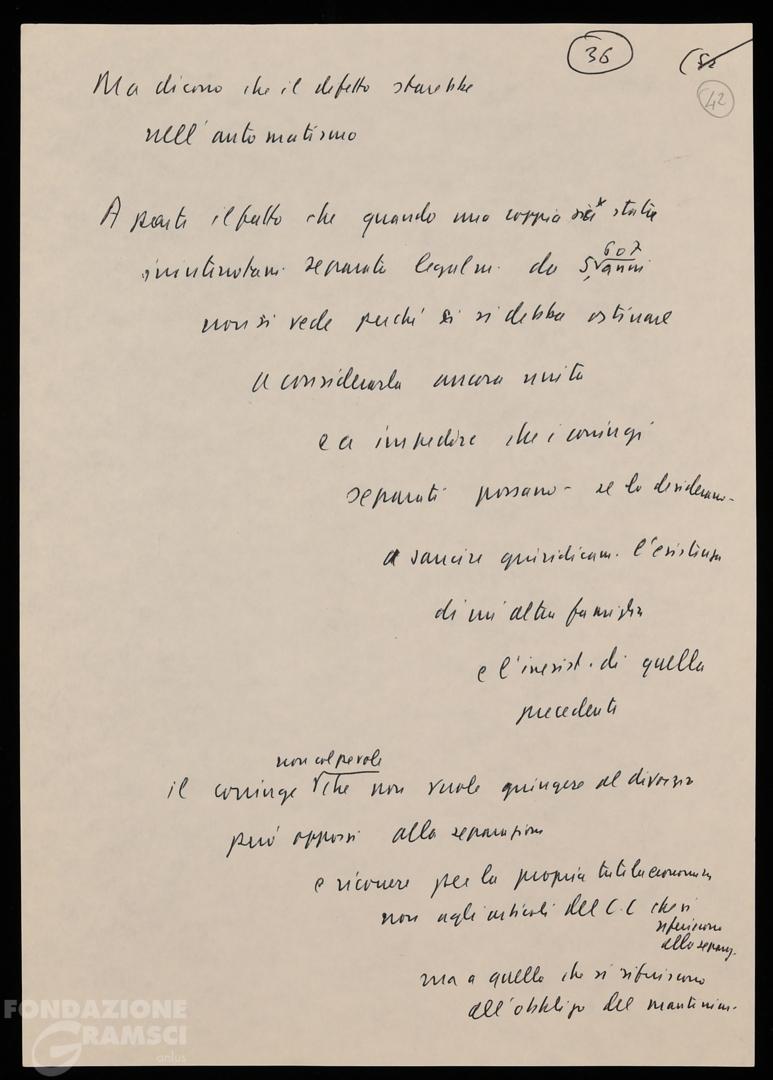 36
42
Ma dicono che il difetto starebbe
nell'automatismo
A parte il fatto che quando una coppia sia stata
ininterrottam. separata legalm. da 5, 6 o 7 anni
non si vede perché ci si debba ostinare
a considerarla ancora unita
e a impedire che i coniugi
separati possano - se lo desiderano -
sancire giuridicam. l'esistenza
di un'altra famiglia
e l'inesist. di quella
precedente
non colpevole
il coniuge che non vuole giungere al divorzio
può opporsi alla separazione
e ricorrere per la propria tutela economica
non agli articoli del C.C che si
riferiscono
alla separaz.
ma a quello che si riferiscono
all'obbligo del mantenim.
FONDAZIONE
GRAMSCI
onlus